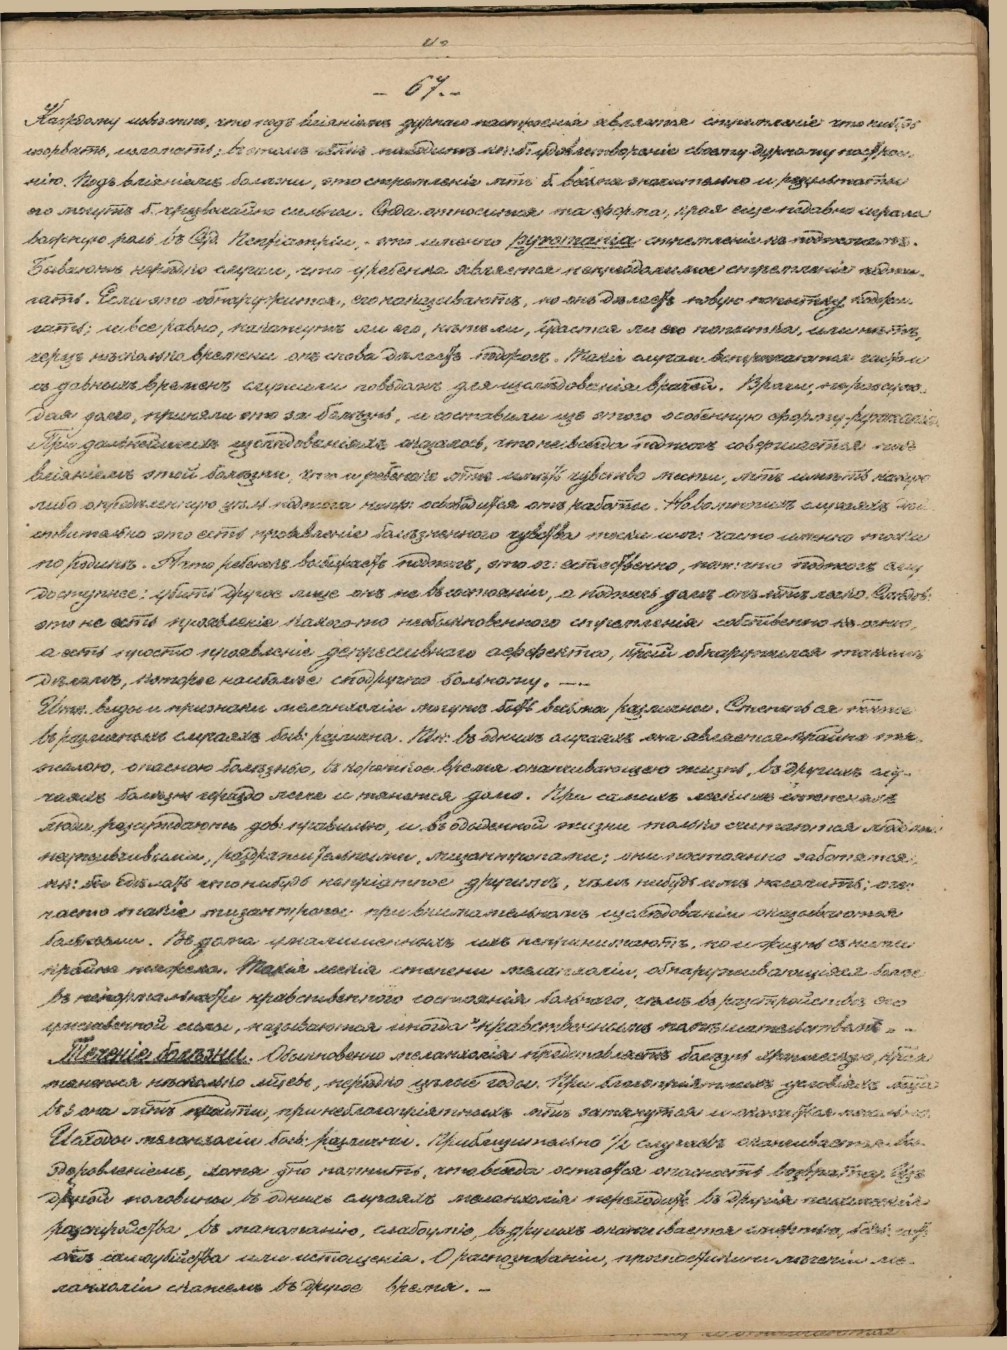 — 67. —
Каждому извѣстно, что подъ вліяніемъ дурнаго настроенія является стремленіе что нибудь
изорвать, изломать; въ этомъ находитъ удовлетвореніе своему дурному настрое-
нію. Подъ вліяніемъ болѣзни, это стремленіе мтъ б. весьма значительно и результаты
его могутъ б. чрезвычайно сильны. Сюда относится та форма, края еще недавно играла
важную роль въ Суд. Психіатріи, - это именно pyromania стремленіе къ поджогамъ.
Бываютъ нерѣдко случаи, что у ребенка является непреодолимое стремленіе поджи-
гать. Если это обнаружится, его наказываютъ, но онъ дѣлаетъ новую попытку поджи-
гать; и все равно, накажутъ ли его, нѣтъ ли, удастся ли его попытка, или нѣтъ,
черезъ нѣсколько времени онъ снова дѣлаетъ поджогъ. Такіе случаи встрѣчаются часто и
съ давнихъ временъ служили поводомъ для изслѣдованія врачей. Врачи,
дая дѣло, приняли это за болѣзнь, и составили изъ этого особенную форму pyromania.
При дальнѣйшихъ изслѣдованіяхъ оказалось, что не всегда поджогъ совершается подъ
вліяніемъ этой болѣзни, что и ребенокъ мтъ имѣть чувство мести, мтъ имѣть какую
либо опредѣленную цѣль поджога напр: освободиться отъ работы. Но во многихъ случаяхъ дѣй-
ствительно это есть проявленіе болѣзненнаго чувства тоски или: часто именно тоски
по родинѣ. А что ребенокъ выбираетъ поджогъ, это о: естественно, пот: что поджогъ ему
доступнѣе: убить другое лице онъ не въ состояніи, а поджечь домъ онъ мтъ легко. Слѣдов:
это не есть проявленіе какого-то необыкновеннаго стремленія собственно къ огню,
а есть просто проявленіе депрессивнаго аффекта, крый обнаружился такимъ
дѣломъ, которое наиболѣе сподручно больному. —
Итакъ виды и признаки меланхоліи могутъ быть весьма различны. Степень ея также
въ различныхъ случаяхъ бываетъ различна. Въ однихъ случаяхъ она является крайне тя-
желою, опасною болѣзнью, въ короткое время оканчивающею жизнь, въ другихъ слу-
чаяхъ болѣзнь гораздо легче и тянется долго. При самыхъ легкихъ степеняхъ
люди разсуждаютъ дов: правильно, и въ обыденной жизни только считаются людьми
неуживчивыми, раздражительными, мизантропами; они постоянно заботятся,
сдѣлать что нибудь непріятное другимъ, чѣмъ нибудь имъ насолить; оче:
часто такіе мизантропы при внимательномъ изслѣдованіи оказываются
больными. Въ дома умалишенныхъ ихъ не принимаютъ, но и жизнь съ ними
крайне тяжела. Такія легкія степени меланхоліи, обнаруживающіяся болѣе
въ ненормальности нравственнаго состоянія больнаго, чѣмъ въ разстройствѣ его
умственной силы, называются иногда "нравственнымъ помѣшательствомъ". -
Теченіе болѣзни. Обыкновенно меланхолія представляетъ болѣзнь хроническую, края
тянется нѣсколько мѣсяц., нерѣдко цѣлые годы. При благопріятныхъ условіяхъ
въ 3 она мтъ пройти, при неблагопріятныхъ мтъ затянуться и
Исходы меланхоліи весьма различны. Приблизительно 1/2 случаевъ оканчивается вы-
здоровленіемъ, хотя до помнить, что всегда остается опасность возврата. Изъ
другой половины въ однихъ случаяхъ меланхолія переходитъ въ другія психическія
разстройства, въ мономанію, слабоуміе, въ другихъ оканчивается смертью,
отъ самоубійства или истощенія. О распознованіи, прогностикѣ и лѣченіи ме-
ланхоліи скажемъ въ другое время. —